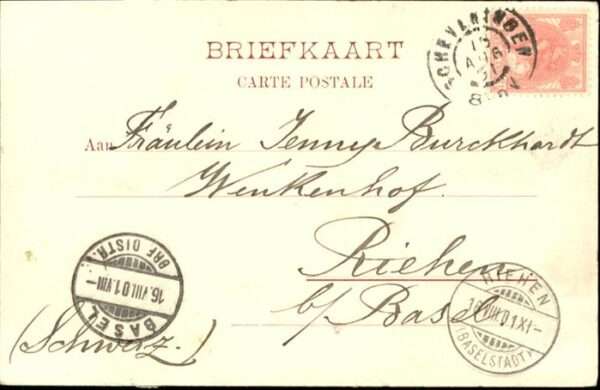 BRIEFKAART
CARTE POSTALE
SCHEVENINGEN
15
AUG
Aan Fräulein Jenny Burckhardt
Wenkenhof.
Riehen
b/Basel
(Schweiz.)
BASEL
16.VIII.01.VIII-
BRF DISTR.
RIEHEN
VIII.01.XI-
(BASELSTADT)